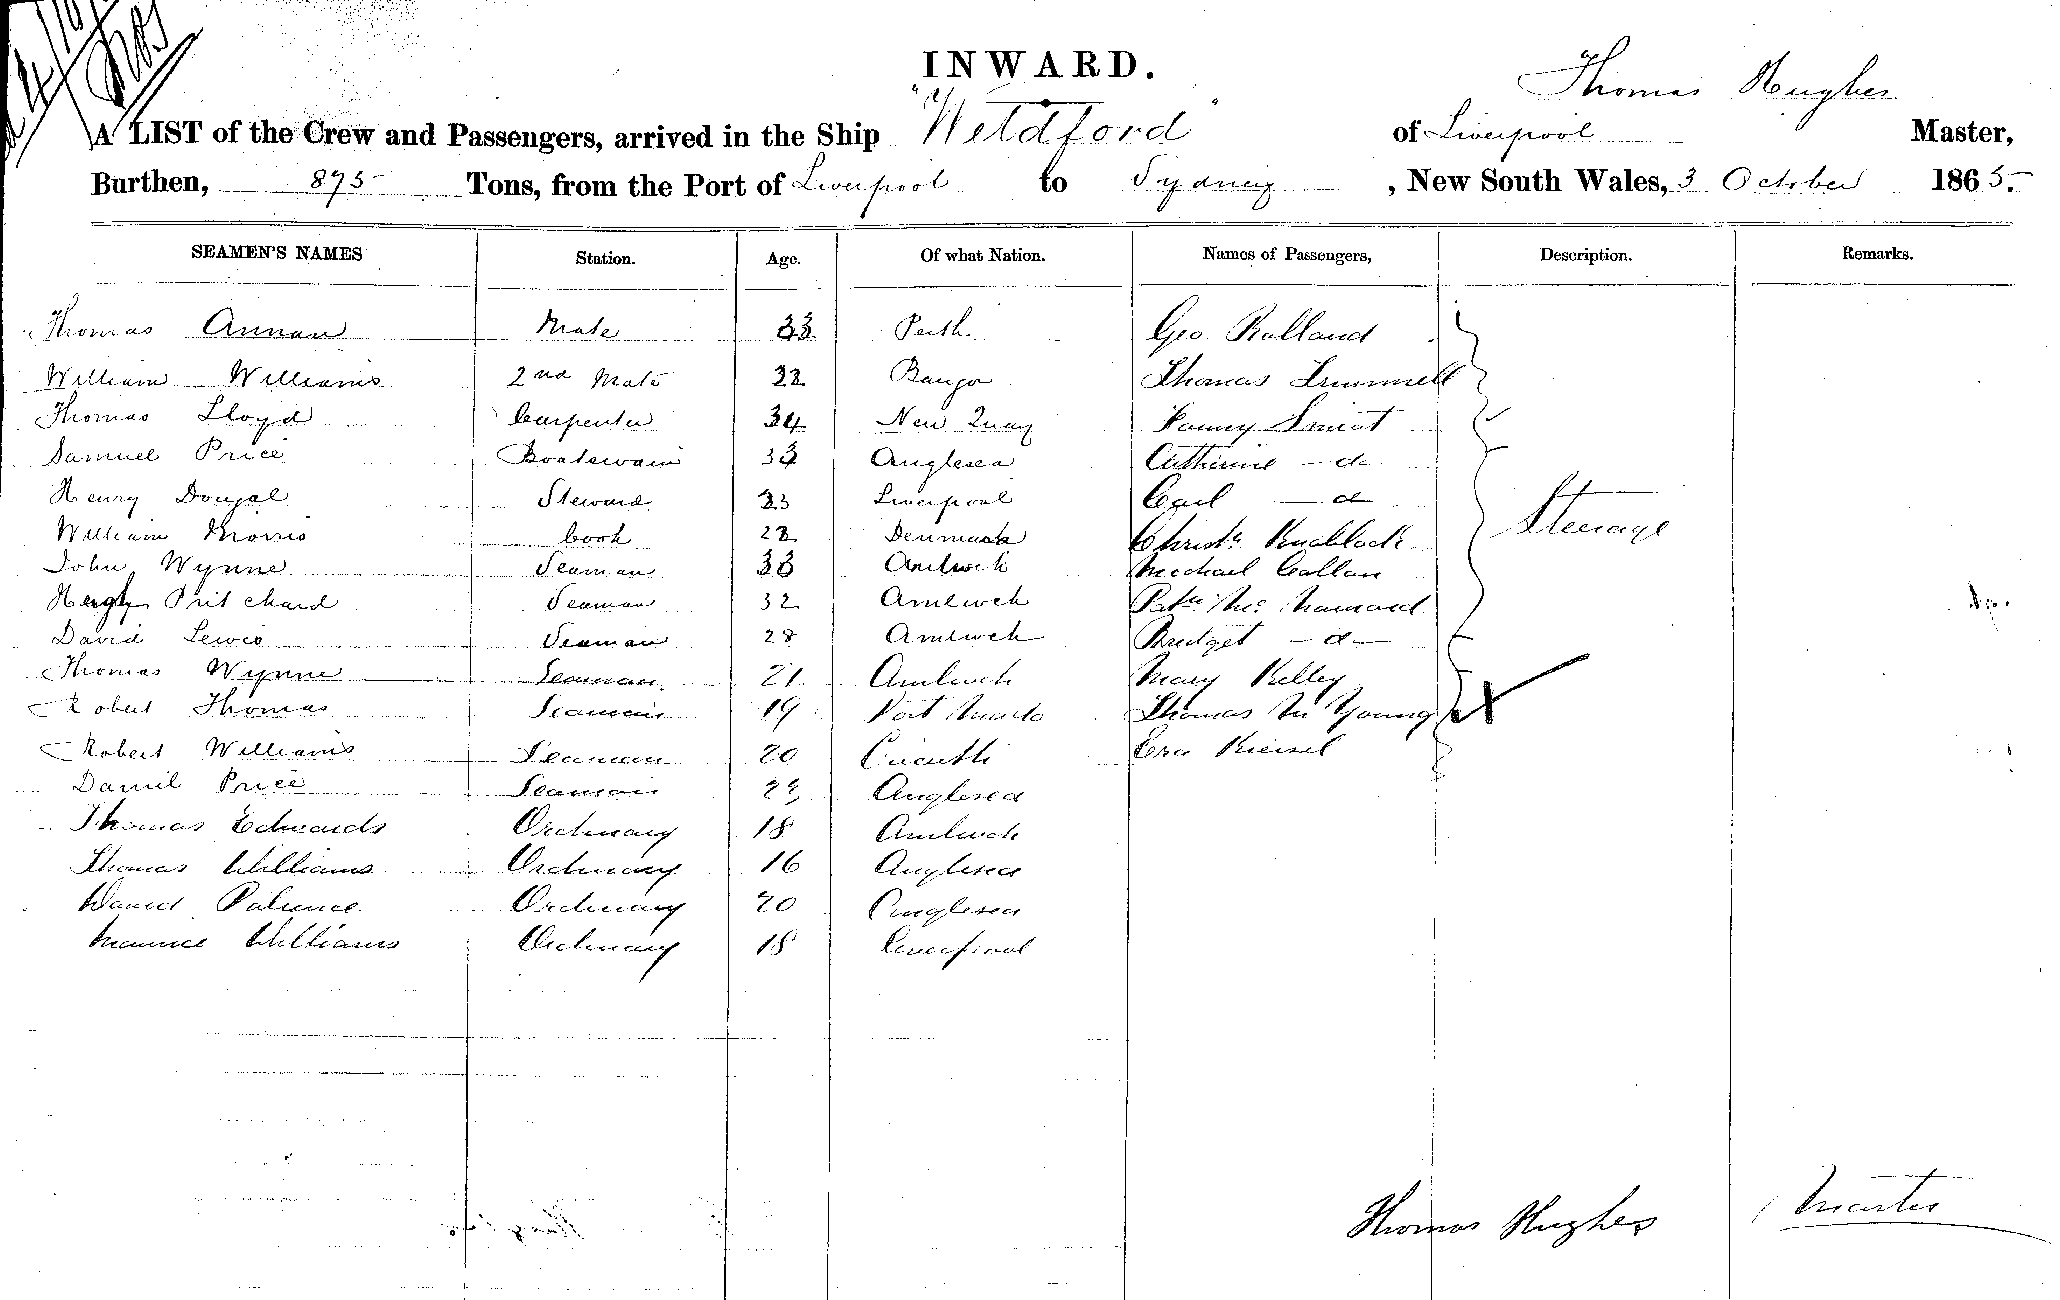 INWARD.
Thomas Hughes
A LIST of the Crew and Passengers, arrived in the Ship "Weldford" of Liverpool Master,
Burthen, 895 Tons, from the Port of Liverpool to Sydney, New South Wales, 3 October 1865.
SEAMEN'S NAMES Station. Age. Of what Nation. Names of Passengers, Description. Remarks.
Thomas Annan Mate 33 Perth Geo Rolland
William Williams 2nd Mate 32 Bangor Thomas Trummell
Thomas Lloyd Carpenter 34 New Quay Fanny
Samuel Price Boatswain 33 Anglesea Catherine - d-
Henry Dougal Steward 23 Liverpool Carl - d- Steerage
William Morris Cook 22 Denmark Christn Knablock
John Wynne Seaman 33 Amlwch Michael Callan
Hugh Pritchard Seaman 32 Amlwch Patk McNamara
David Lewis Seaman 28 Amlwch Bridget - d-
Thomas Wynne Seaman 21 Amlwch Mary Kelley
Robert Thomas Seaman 19 Port Mado Thomas M Young
Robert Williams Seaman 20 Cricieth
Daniel Price Seaman 22 Anglesea
Thomas Edwards Ordinary 18 Amlwch
Thomas Williams Ordinary 16 Anglesea
David Patience Ordinary 20 Anglesea
Maurice Williams Ordinary 18 Liverpool
Thomas Hughes Master